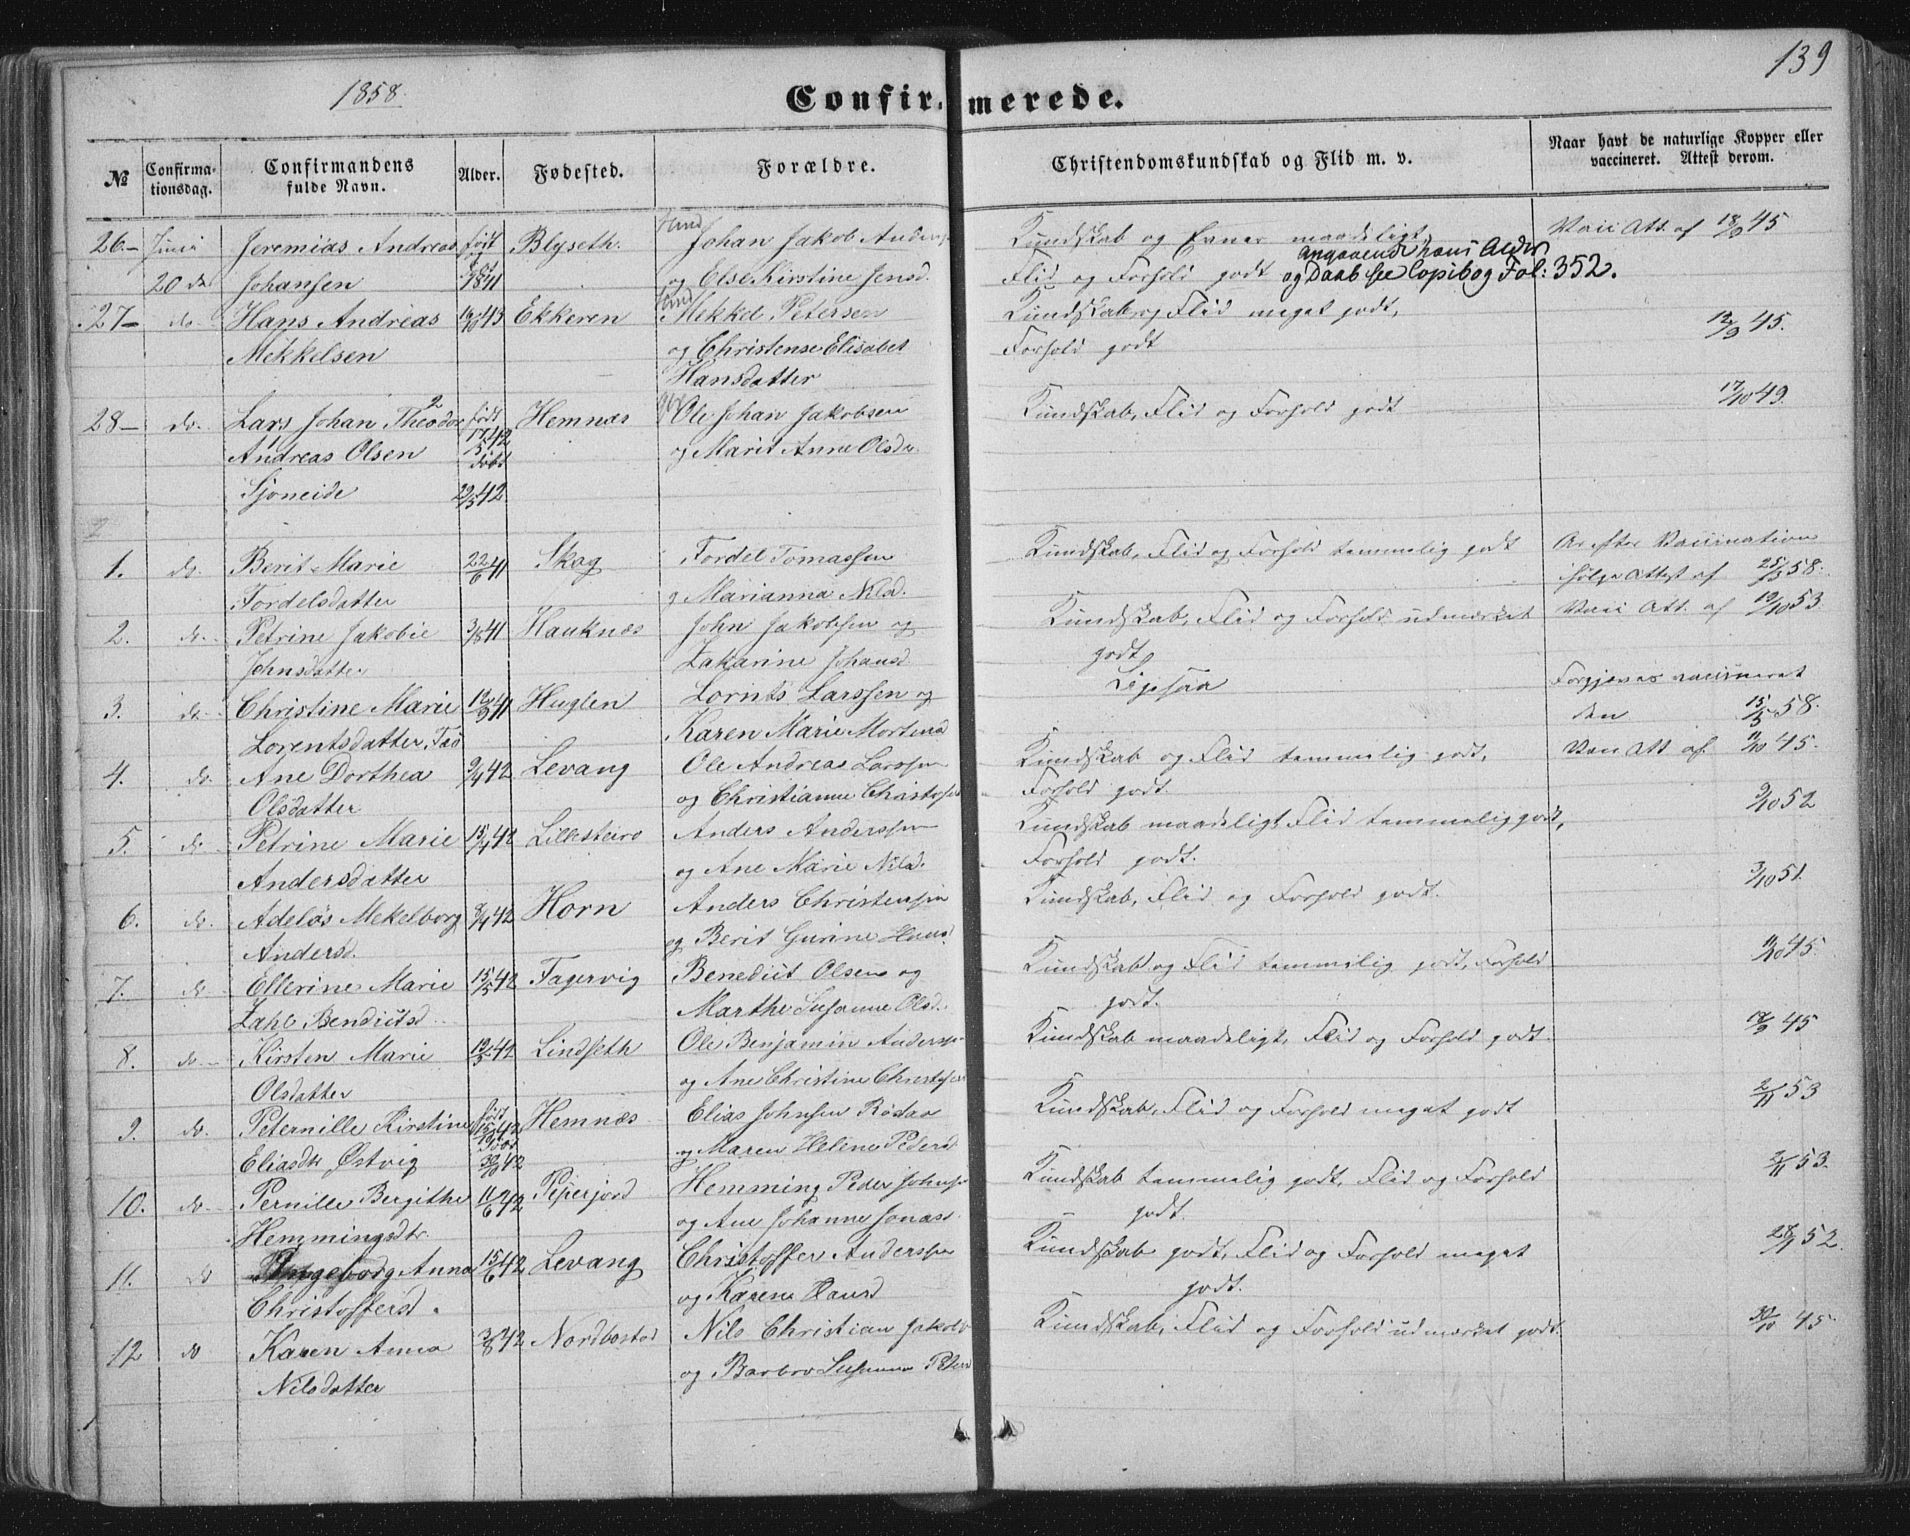 1858.
Confirmerede.
139
№
Confirmationsdag.
Confirmandens fulde Navn.
Alder.
Fødested.
Forældre.
Christendomskundskab og Flid m. v.
Naar havt de naturlige Kopper eller vaccineret. Attest derom.
26 Juni Jeremias Andreas født Blyseth. Johan Jakob Anders
Kundskab og Evner maadeligt, Att. af 18/9 45
20de Johansen 1841 og Else Kirstine Jensd.
Flid og Forhold godt angaaende hans Alder
og Daab see Copibog Fol: 352.
27 do. Hans Andreas 43 Ekkeren Mekkel Petersen
Kundskab og Flid meget godt, 12/9 45.
Mekkelsen og Christense Elisabet
Forhold godt
Hansdatter
28 do. Lars Johan Theodor født Hemnæs Ole Johan Jakobsen
Kundskab, Flid og Forhold godt 17/10 49.
Andreas Olsen 17/5 42 og Marit Anne Olsdr
døbt
Sjoneide 29/5 42
1. do. Berit Marie 22/6 41 Skag Fordel Tomassen
Kundskab, Flid og Forhold temmelig godt Ar efter Vaccination
Fordelsdatter og Marianna Nilsd.
ifølge Attest af 25/5 58.
2. do. Petrine Jakobie 3/8 41 Hauknes John Jakobsen og
Kundskab, Flid og Forhold udmærket Att. af 19/10 53.
Johnsdatter Zakarine Johansd.
godt
3. do. Christine Marie 12/9 41 Huglen Lornts Larssen og
Ligesaa Forgjæves vaccineret
Lorentsdatter Karen Marie Mortensd
den 15/5 58.
4. do. Ane Dorthea 9/4 42 Levang Ole Andreas Larssen
Kundskab og Flid temmelig godt, Att. af 11/10 45.
Olsdatter og Christianne Christofersd
Forhold godt.
5. do. Petrine Marie 15/4 42 Lillesteiro Anders Anderssen
Kundskab maadeligt Flid temmelig godt, 9/10 52
Andersdatter og Ane Marie Nilsd.
Forhold godt.
6. do. Adeløs Mekelborg 8/4 42 Horn Anders Christensen
Kundskab, Flid og Forhold godt. 3/10 51.
Andersd. og Berit Gurine Hansd.
7. do Ellerine Marie 15/5 42 Fagervig Benedict Olsen og
Kundskab og Flid temmelig godt, Forhold 11/10 45.
Zahl Bendictsd. Marthe Susanne Olsd.
godt.
8. do. Kirsten Marie 12/5 42 Lindseth Ole Benjamin Anderssen
Kundskab maadeligt, Flid og Forhold godt. 18/9 45
Olsdatter og Ane Christine Christofersd
9. do. Peternille Kirstine født Hemnæs Elias Johnsen Rødaa
Kundskab, Flid og Forhold meget godt 2/11 53
Eliasdtr Østvig 42 og Maren Helene Pedersd
10. do. Pernille Bergithe 11/6 42 Peperjord Hemming Peder Johnsen
Kundskab temmelig godt, Flid og Forhold 2/11 53.
Hemmingsdtr og Ane Johanne Jonasd.
godt.
11. do Ingeborg Anna 15/6 42 Levang Christoffer Anderssen
Kundskab godt, Flid og Forhold meget 28/9 52.
Christoffersd. og Karen Hansd
godt.
12 do Karen Anna 3/8 42 Nordbostad Nils Christian Jakobs
Kundskab, Flid og Forhold udmærket godt. 30/10 45.
Nilsdatter og Barbro Susanna Peders